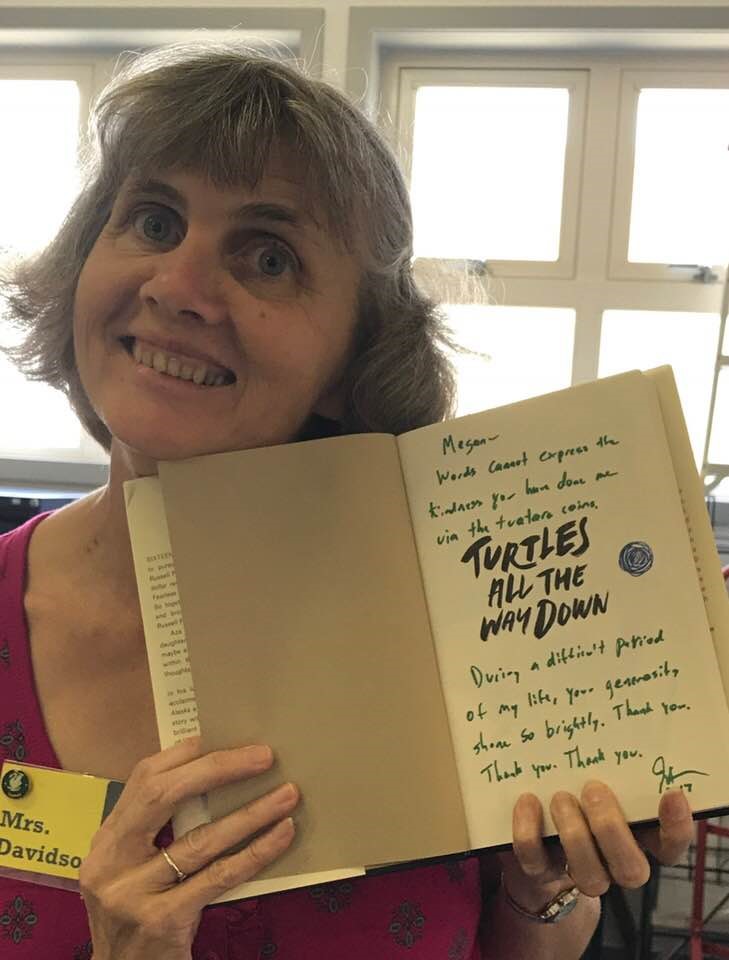 Megan–
Words cannot express the
kindness you have done me
via the tuatara coins.
TURTLES
ALL THE
WAY DOWN
During a difficult period
of my life, your generosity
shone so brightly. Thank you.
Thank you. Thank you.
Mrs.
Davidso
SIXTEEN
to pursu
Russell P
dollar re
Fearless
So toget
and bro
Russell P
Aza
daughter
maybe a
within t
thoughts
In his l
acclaime
Alaska a
story wi
brillian